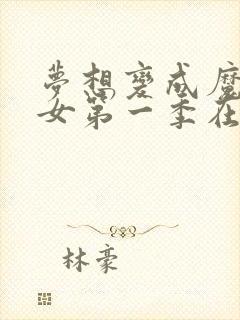 夢想變成魔
女第一季在
林豪